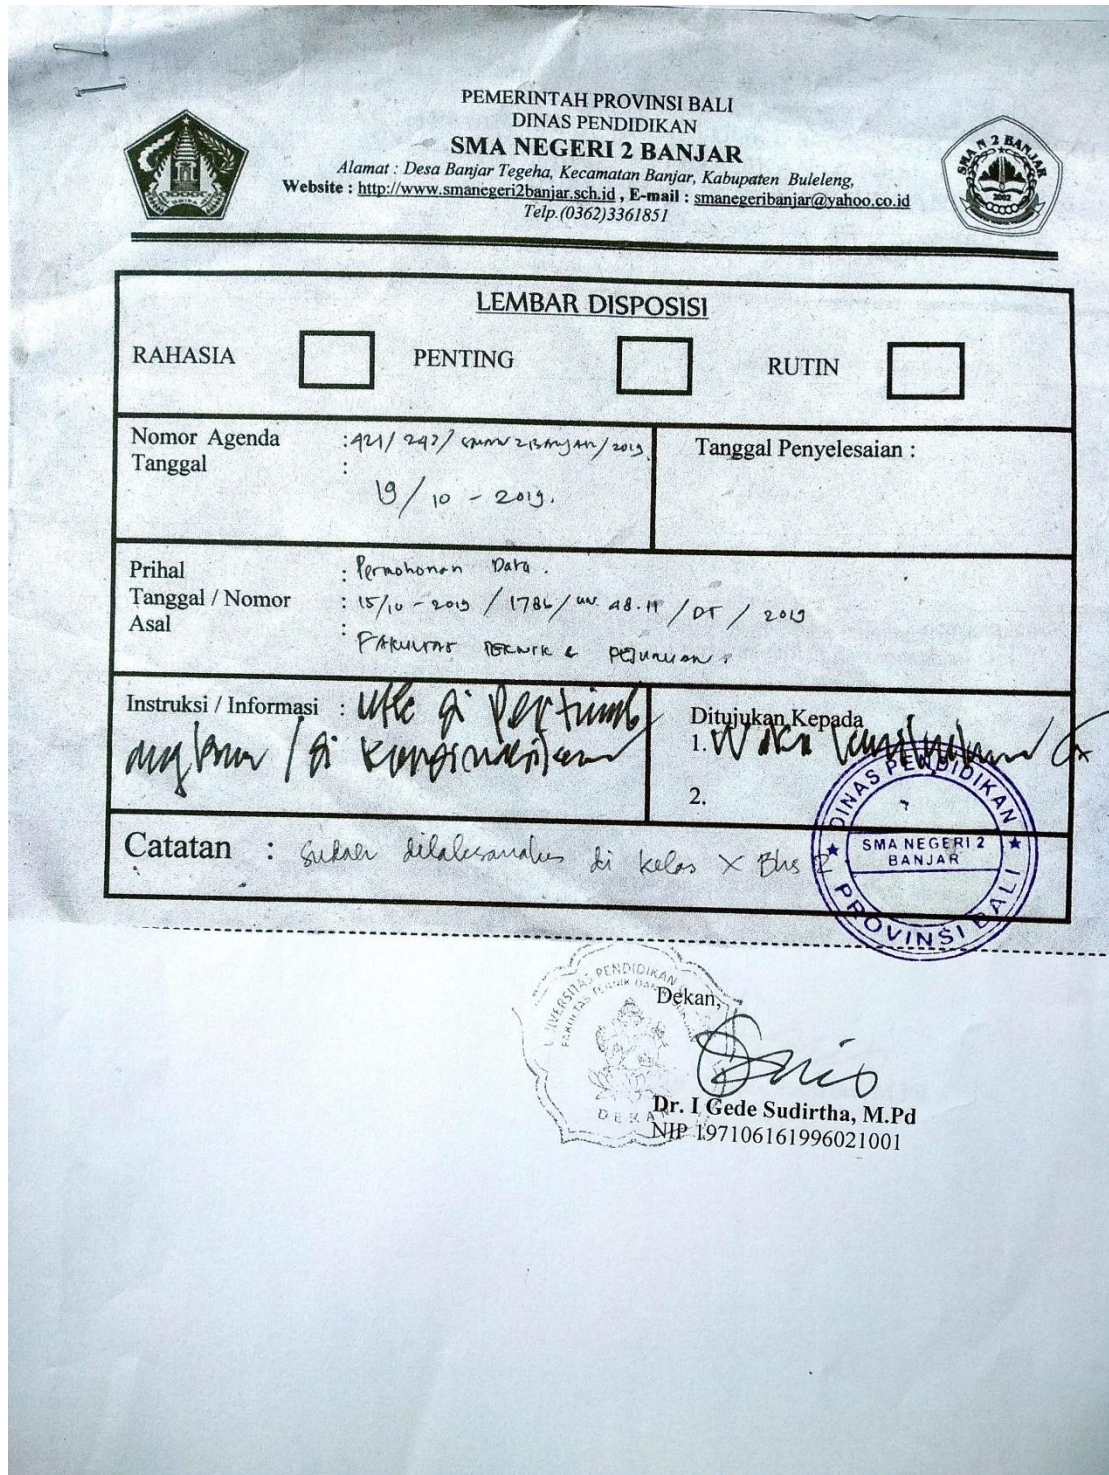 PEMERINTAH PROVINSI BALI
DINAS PENDIDIKAN
SMA NEGERI 2 BANJAR
Alamat : Desa Banjar Tegeha, Kecamatan Banjar, Kabupaten Buleleng,
Website : http://www.smanegeri2banjar.sch.id , E-mail : smanegeribanjar@yahoo.co.id
Telp.(0362)3361851
SMA N 2 BANJAR
2002
LEMBAR DISPOSISI
RAHASIA PENTING RUTIN
Nomor Agenda : 421/ /2019
Tanggal :
19/10 - 2019.
Tanggal Penyelesaian :
Prihal : Permohonan Data.
Tanggal / Nomor : 15/10 - 2019 / 1786/ 48.11 / DT / 2019
Asal : FAKULTAS TEKNIK & KEJURUAN
Instruksi / Informasi : Utk di pertimb
angkan / di
Ditujukan Kepada
1. Waka
2.
Catatan : Sudah dilaksanakan di kelas X Bhs 2
DINAS PENDIDIKAN
SMA NEGERI 2
BANJAR
PROVINSI BALI
UNIVERSITAS PENDIDIKAN
FAKULTAS TEKNIK DAN
DEKAN
Dekan,
Dr. I Gede Sudirtha, M.Pd
NIP 197106161996021001